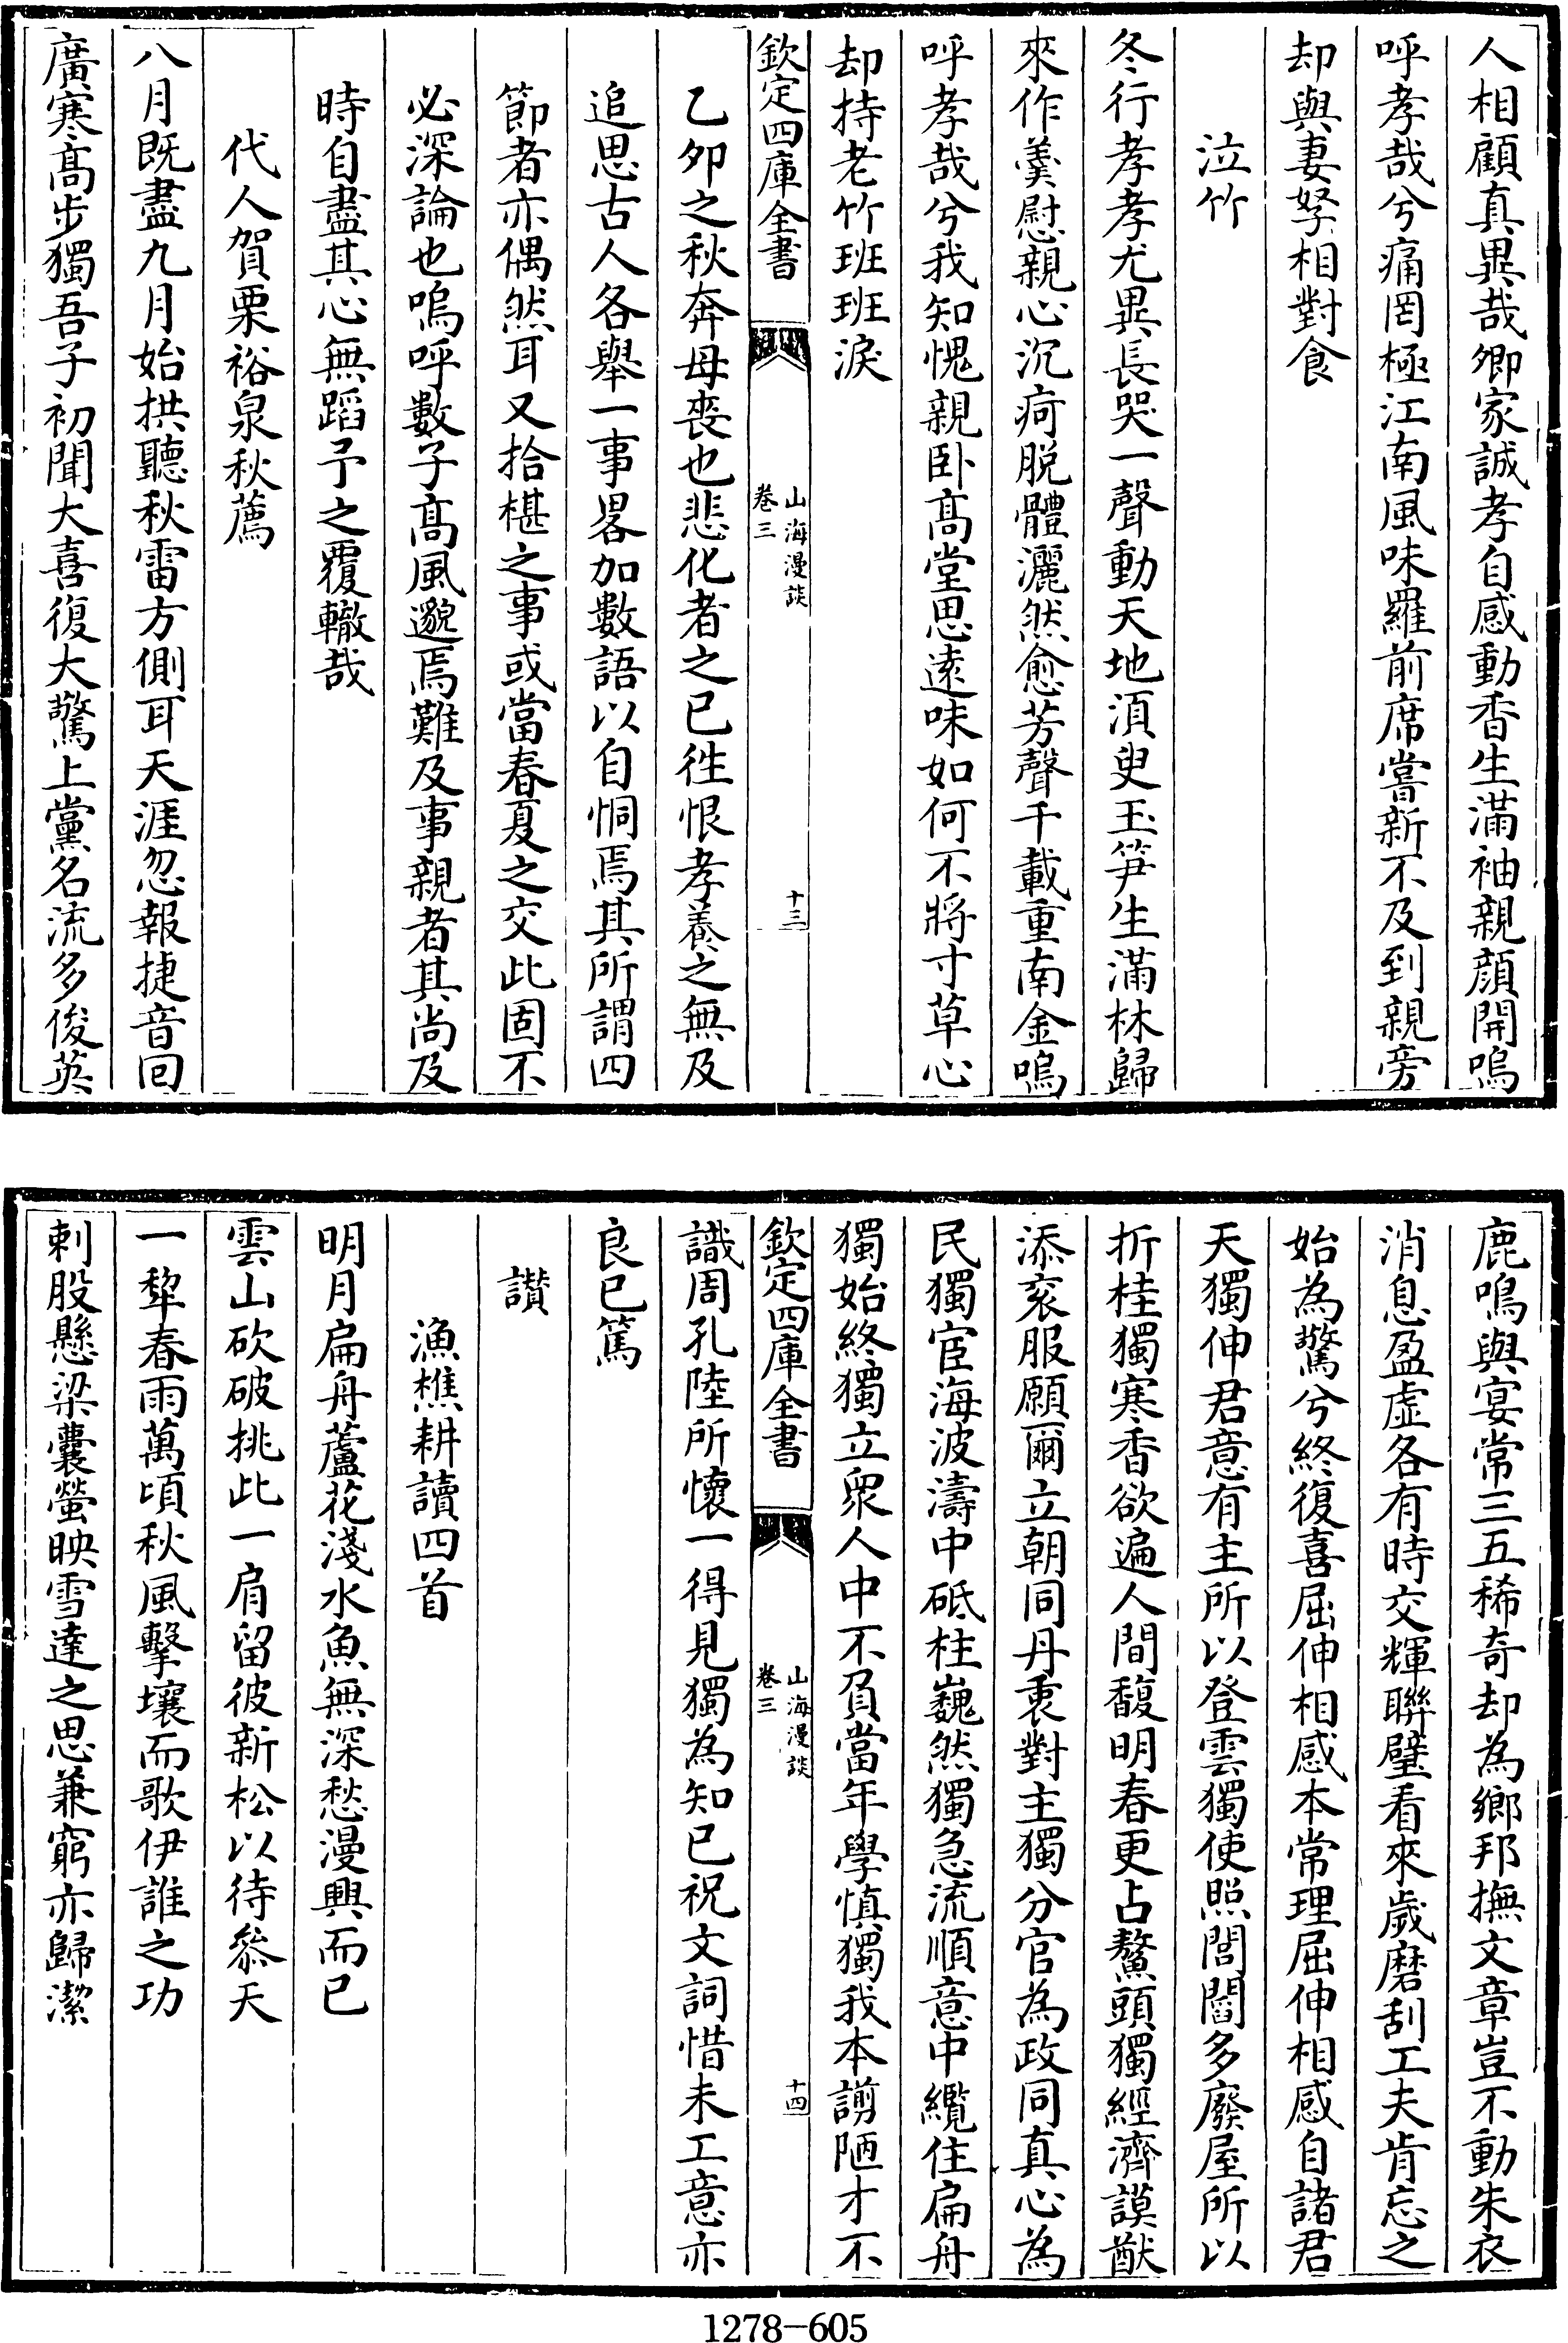 人相顧真異哉卿家誠孝自感動香生滿袖親顔開嗚
呼孝哉兮痛罔極江南風味羅前席嘗新不及到親旁
却與妻孥相對食
泣竹
冬行孝孝尤異長哭一聲動天地湏臾玉笋生滿林歸
來作羮慰親心沉疴脱體灑然愈芳聲千載重南金嗚
呼孝哉兮我知愧親卧髙堂思逺味如何不將寸草心
却持老竹班班淚
欽定四庫全書
山海漫談
卷三
十三
乙夘之秋奔母喪也悲化者之已徃恨孝養之無及
追思古人各舉一事畧加數語以自恫焉其所謂四
節者亦偶然耳又拾椹之事或當春夏之交此固不
必深論也嗚呼數子髙風邈焉難及事親者其尚及
時自盡其心無蹈予之覆轍哉
代人賀栗裕泉秋薦
八月既盡九月始拱聽秋雷方側耳天涯忽報捷音回
廣寒髙步獨吾子初聞大喜復大驚上黨名流多俊英
鹿鳴與宴常三五稀奇却為鄉邦撫文章豈不動朱衣
消息盈虚各有時交輝聨璧看來嵗磨刮工夫肯忘之
始為驚兮終復喜屈伸相感本常理屈伸相感自諸君
天獨伸君意有主所以登雲獨使照閭閻多廢屋所以
折桂獨寒香欲遍人間馥明春更占鰲頭獨經濟謨猷
添衮服願爾立朝同丹衷對主獨分官為政同真心為
民獨宦海波濤中砥柱巍然獨急流順意中纜住扁舟
獨始終獨立衆人中不負當年學慎獨我本謭陋才不
欽定四庫全書
山海漫談
卷三
十四
識周孔陸所懷一得見獨為知已祝文詞惜未工意亦
良已篤
讃
漁樵耕讀四首
明月扁舟蘆花淺水魚無深愁漫興而已
雲山砍破挑此一肩留彼新松以待叅天
一犂春雨萬頃秋風擊壤而歌伊誰之功
刺股懸梁囊螢映雪達之思兼窮亦歸潔
1278-605